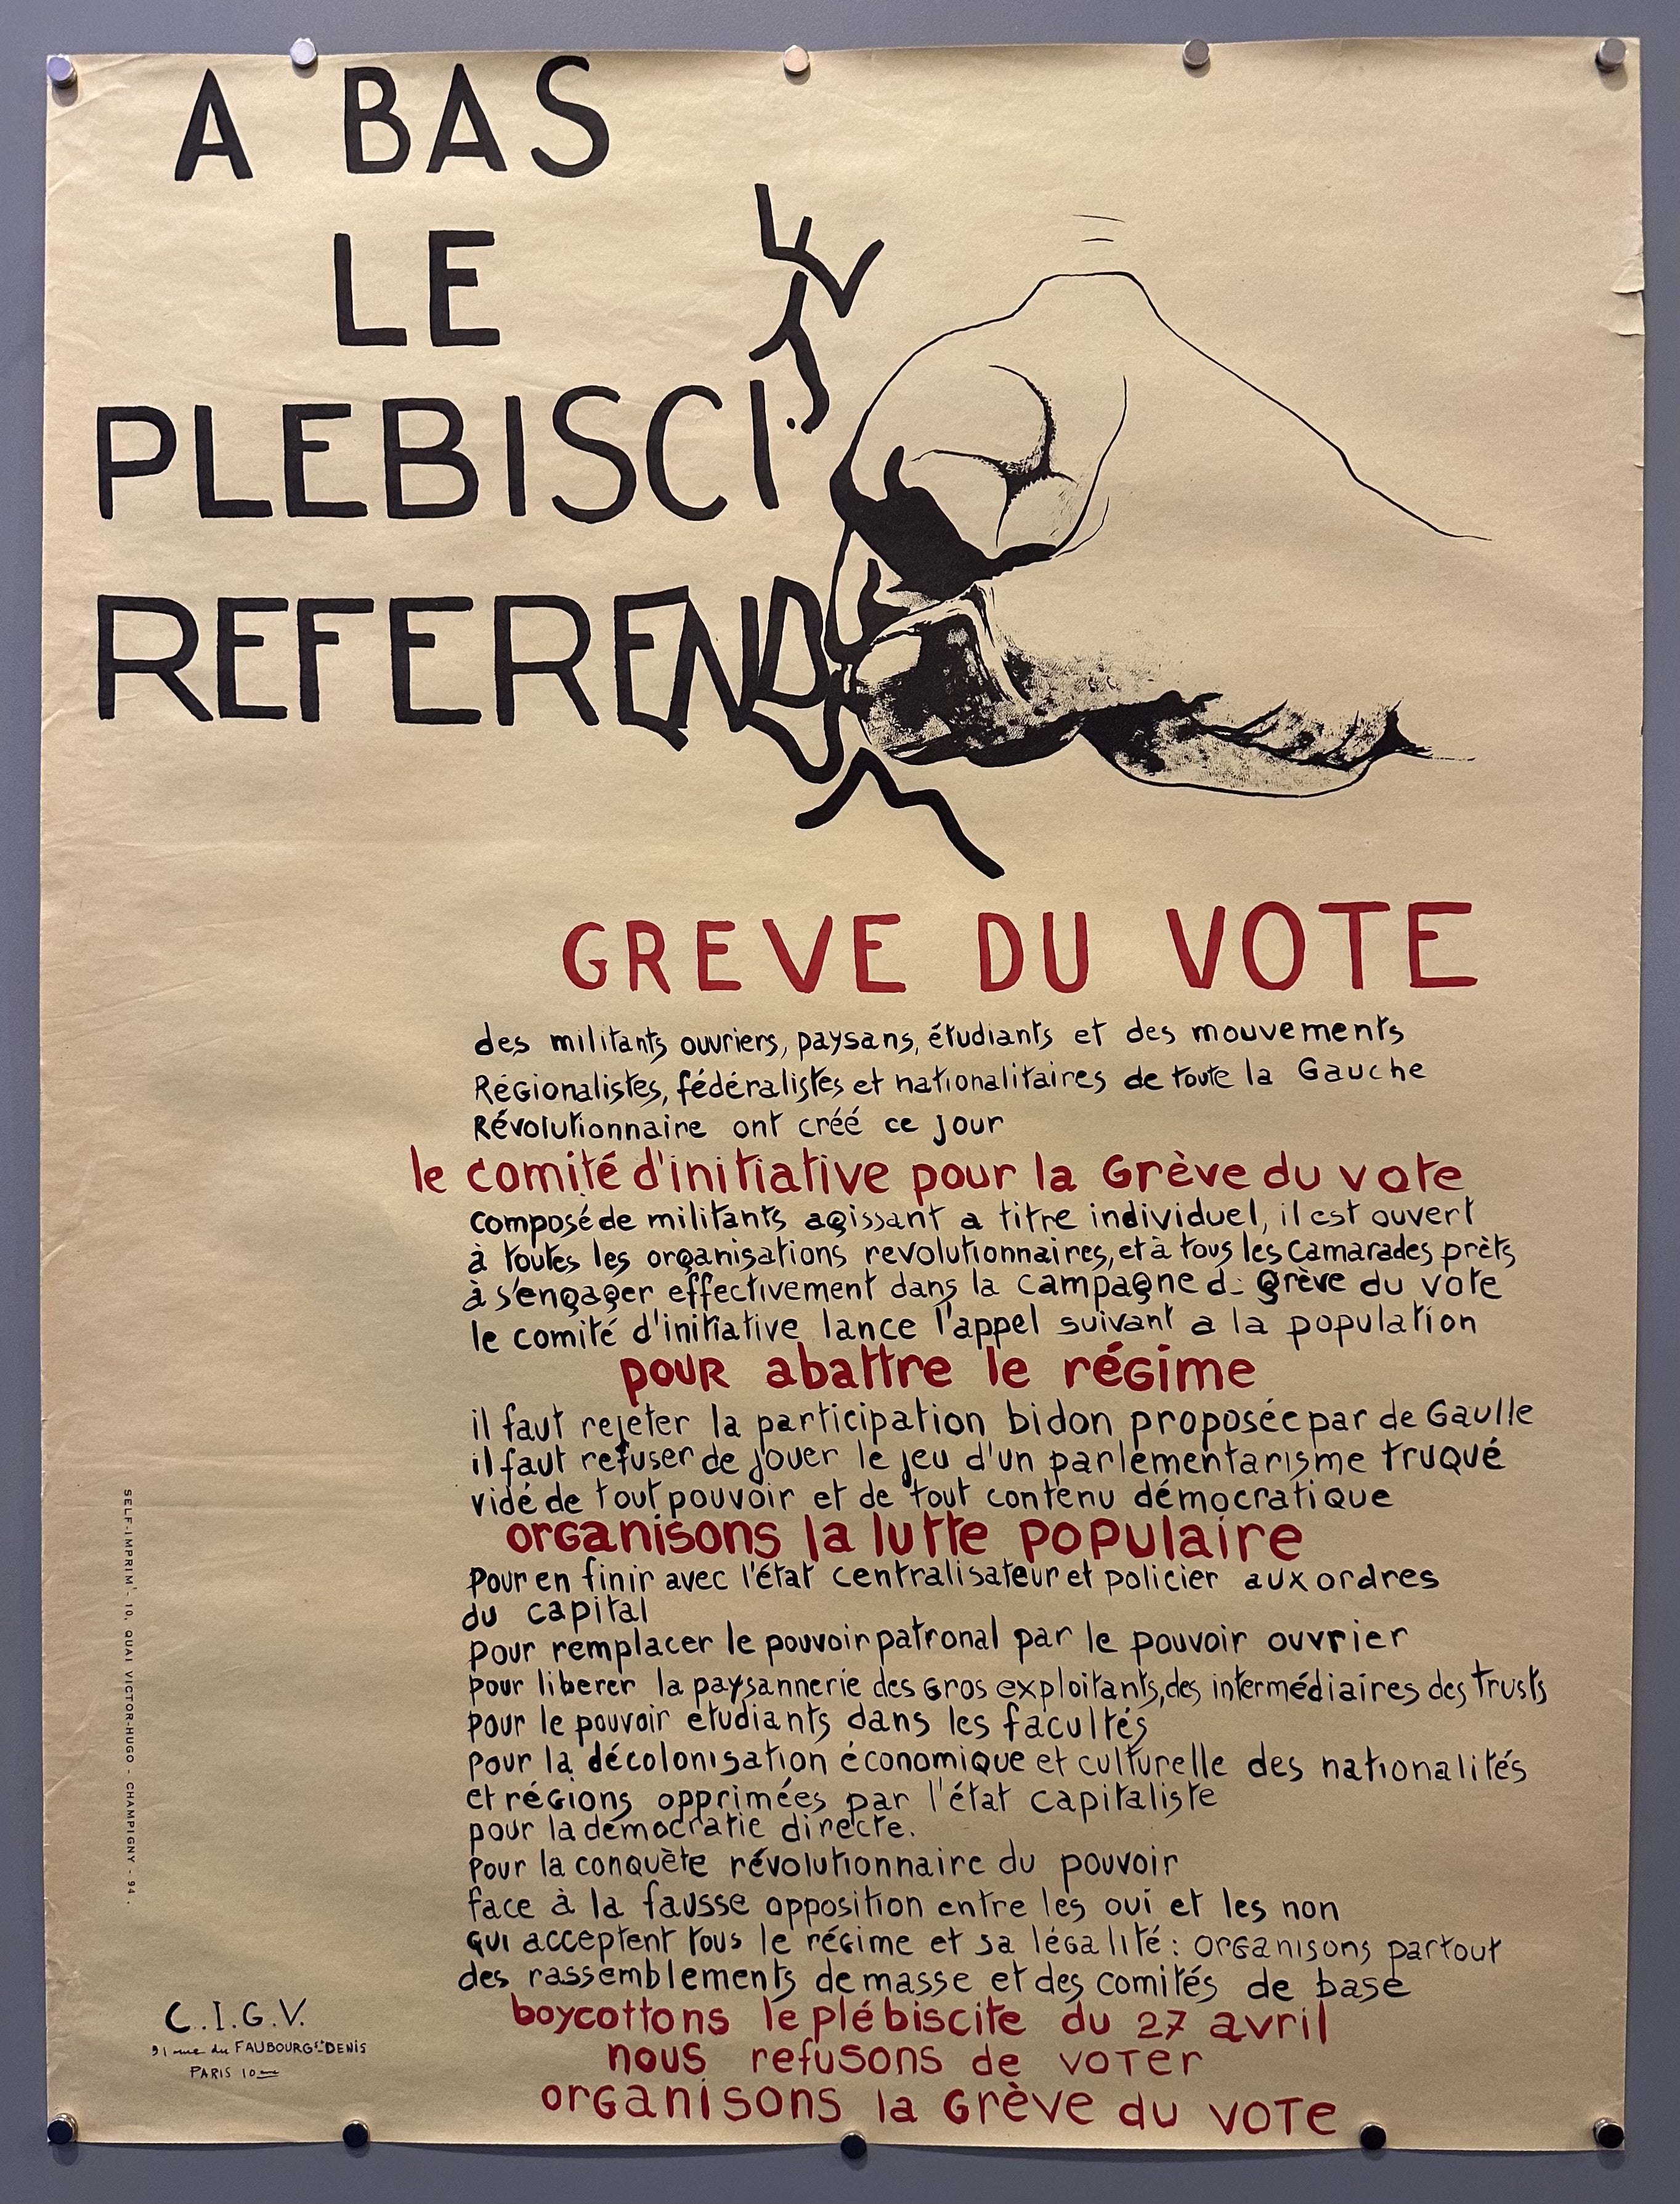 A BAS
LE
PLEBISCITE
REFERENDUM
GREVE DU VOTE
des militants ouvriers, paysans, étudiants et des mouvements
Régionalistes, fédéralistes et nationalitaires de toute la Gauche
Révolutionnaire ont créé ce jour
le comité d'initiative pour la Grève du vote
composé de militants agissant a titre individuel, il est ouvert
à toutes les organisations revolutionnaires, et à tous les camarades prèts
à s'engager effectivement dans la campagne de grève du vote
le comité d'initiative lance l'appel suivant a la population
pour abattre le régime
il faut rejeter la participation bidon proposée par de Gaulle
il faut refuser de jouer le jeu d'un parlementarisme truqué
vidé de tout pouvoir et de tout contenu démocratique
organisons la lutte populaire
pour en finir avec l'état centralisateur et policier aux ordres
du capital
pour remplacer le pouvoir patronal par le pouvoir ouvrier
pour liberer la paysannerie des gros exploitants, des intermédiaires des trusts
pour le pouvoir etudiants dans les facultés
pour la décolonisation économique et culturelle des nationalités
et régions opprimées par l'état capitaliste
pour la démocratie directe.
pour la conquète révolutionnaire du pouvoir
face à la fausse opposition entre les oui et les non
qui acceptent tous le régime et sa légalité : organisons partout
des rassemblements de masse et des comités de base
boycottons le plébiscite du 27 avril
nous refusons de voter
organisons la Grève du vote
C.I.G.V.
91 rue du FAUBOURG St DENIS
PARIS 10me
SELF-IMPRIM' - 10, QUAI VICTOR-HUGO - CHAMPIGNY - 94.